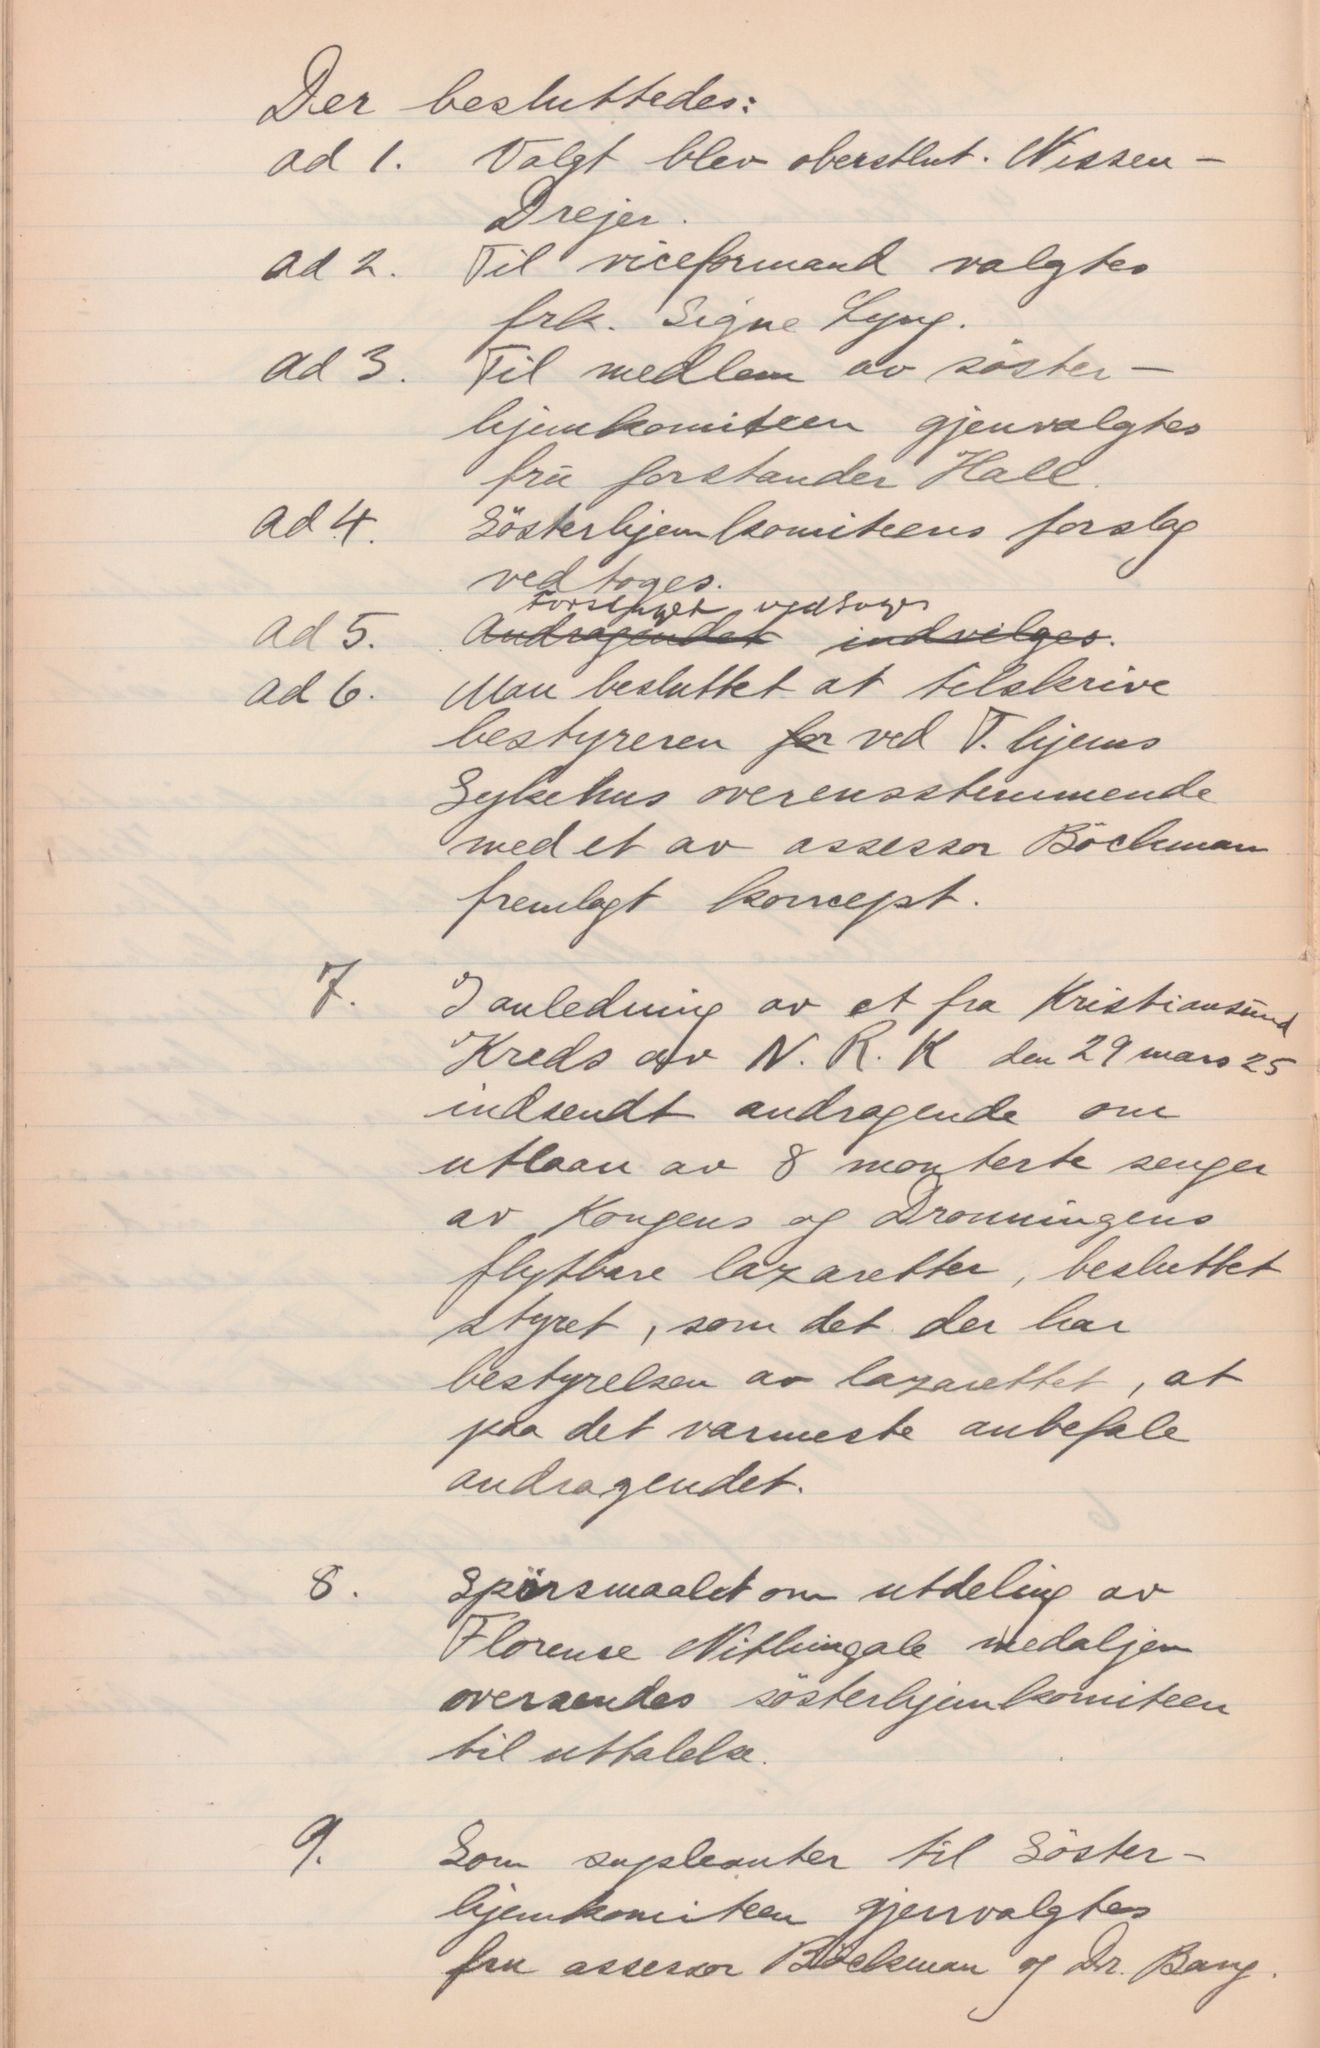 Der besluttedes:
ad 1. Valgt blev oberstlut. Nissen-
Drejer.
ad 2. Til viceformand valgtes
frk. Signe Lyng.
ad 3. Til medlem av söster-
hjemkomiteen gjenvalgtes
fru forstander Hall.
ad 4. Sösterhjemkomiteens forslag
vedtoges.
Forslaget vedtoges
ad 5. Andragendet indvilges.
ad 6. Man besluttet at tilskrive
bestyreren for ved T.hjems
Sykehus overensstemmende
med et av assessor Böckman
fremlagt koncept.
7. I anledning av et fra Kristiansund
Kreds av N. R. K den 29 mars 25
indsendt andragende om
utlaan av 8 monterte senger
av Kongens og Dronningens
flytbare lazaretter, besluttet
styret, som det der har
bestyrelsen av lazarettet, at
paa det varmeste anbefale
andragendet.
8. Spörsmaalet om utdeling av
Florense Nithingale medaljen
oversendes sösterhjemkomiteen
til uttalelse.
9. Som supleanter til Söster-
hjemkomiteen gjenvalgtes
fru assessor Böckman og Dr. Bang.